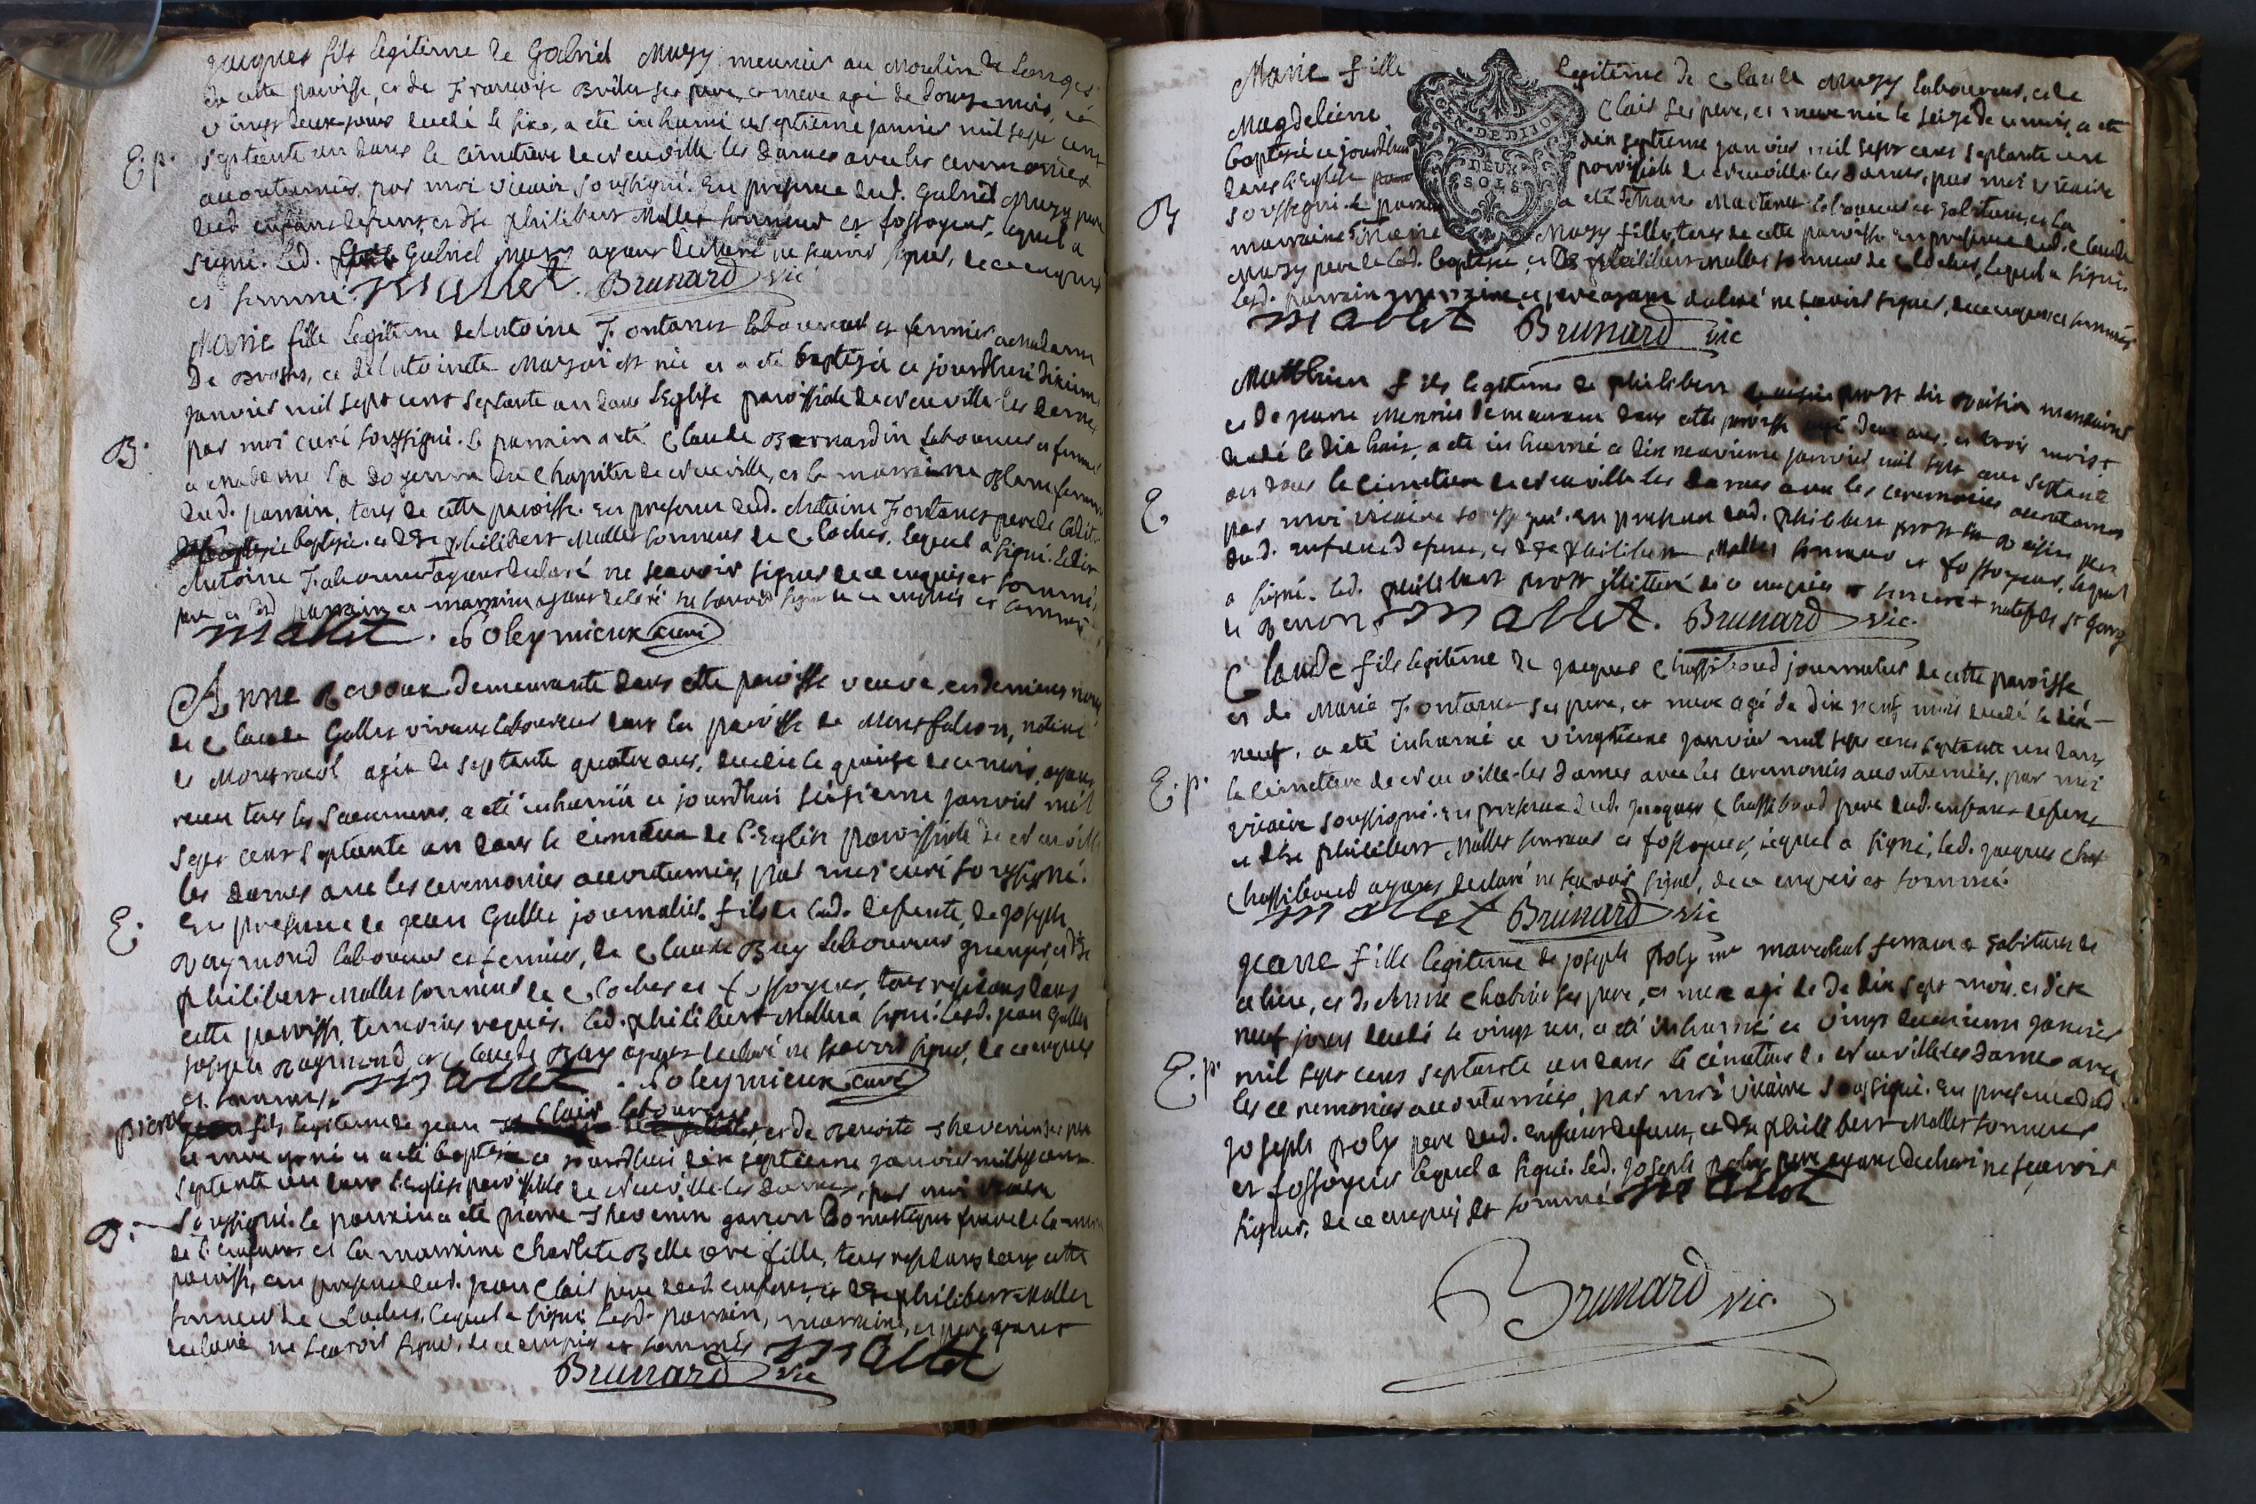 jacques fils legitime de Gabriel Muzy meunier au Moulin de Longes
de cette paroisse, et de Françoise Brulas ses pere, et mere agé de douze mois, et
vingt deux jours decedé le six, a eté inhumé ce septieme janvier mil sept cent
E. p. septante un dans le cimetiere de Neuville les dames avec les ceremonies
accoutumées, par moi vicaire soussigné. En presence dud. Gabriel Muzy pere
dud. enfant defunt, et de philibert Mallet sonneur et fossoyeur, lequel a
signé. Led. Gabriel Muzy ayant declaré ne scavoir signer, de ce enquis
et sommé. Mallet. Brunard vic
Marie fille legitime de Antoine Fontanet laboureur et fermier a Madame
De Brosses, et de Antoinete Mazoier est née et a eté baptisée ce jourdhui dixieme
janvier mil sept cent septante un dans l'Eglise paroissiale de Neuville les dames
B. par moi curé soussigné. le parrain a eté Claude Bernardin laboureur et fermier
a madame la doyenne du Chapitre de Neuville, et la marraine femme
dud. parrain, tous de cette paroisse. En presence dud. Antoine Fontanet pere de ladite
baptisée. et de philibert Mallet sonneur de Cloches, lequel a signé. Ledit
Antoine ayant declaré ne scavoir signer de ce enquis et sommé,
pere et parrain et marraine ayant declaré ne scavoir signer de ce enquis et sommé
Mallet. Soleymieux curé
Anne Revoux demeurante dans cette paroisse veuve, en derniers noces
de Claude Gallet vivant laboureur dans la paroisse de Montfalcon, native
de Montracol agée de septante quatre ans, decedée le quinze de ce mois, ayant
receu tous les Sacremens, a eté inhumée ce jourdhui seizieme janvier mil
sept cent septante un dans le cimetiere de l'Eglise paroissiale de Neuville
les dames avec les ceremonies accoutumées, par moi curé soussigné.
E. En presence de jean Gallet journalier fils de lad. defunte, de joseph
Raymond laboureur et fermier, de Claude Buy laboureur granger, et de
philibert Mallet sonneur de Cloches et fossoyeur, tous residans dans
cette paroisse, temoins requis. Led. philibert Mallet a signé. Lesd. jean Gallet
joseph Raymond, et Claude Buy ayant declaré ne scavoir signer, de ce enquis
et sommés. Mallet. Soleymieux curé
pierre fils legitime de jean Clair laboureur et de Benoite Thevenin ses pere
et mere est né et a eté baptisé ce jourdhui dix septieme janvier mil sept cent
septante un dans l'Eglise paroissiale de Neuville les dames, par moi vicaire
B. soussigné. le parrain a eté pierre Thevenin garçon Domestique frere de la mere
de l'enfant et la marraine Charlote Belle fille, tous residans dans cette
paroisse, en presence dud. jean Clair pere dud. enfant, et de philibert Mallet
sonneur de Cloches, lequel a signé. Lesd. parrain, marraine, et pere ayant
declaré ne scavoir signer, de ce enquis et sommés Mallet
Brunard vic
Marie fille legitime de Claude Muzy laboureur, et de
Magdeleine Clair ses pere, et mere née le seize de ce mois, a eté
baptisée ce jourdhui dix septieme janvier mil sept cent septante un
dans l'Eglise paroissiale de Neuville les dames, par moi vicaire
B. soussigné. le parrain a eté Martinet laboureur et la
marraine Marie Muzy fille, tous de cette paroisse. En presence dud. Claude
Muzy pere de lad. baptisée, et de philibert Mallet sonneur de Cloches, lequel a signé.
Lesd. parrain marraine et pere ayant declaré ne scavoir signer, de ce enquis et sommés
Mallet Brunard vic
GEN. DE DIJON
DEUX
SOLS
Matthieu fils legitime de philibert prost dit voisin
et de jeanne Mennier demeurant dans cette paroisse agé deux ans, et trois mois
decedé le dix huit, a eté inhumé ce dix neuvieme janvier mil sept cent septante
E. un dans le cimetiere de Neuville les dames avec les ceremonies accoutumées
par moi vicaire soussigné. En presence dud. philibert prost pere
dud. enfant defunt, et de philibert Mallet sonneur et fossoyeur, lequel
a signé. Led. philibert prost illitteré de ce enquis et sommé + natif de St George
de Renon. Mallet. Brunard vic.
Claude fils legitime de jacques Chassiboud journalier de cette paroisse
et de Marie Fontanet ses pere, et mere agé de dix neuf mois decedé le dix
neuf, a eté inhumé ce vingtieme janvier mil sept cent septante un dans
E. p. le cimetiere de Neuville les dames avec les ceremonies accoutumées, par moi
vicaire soussigné. En presence dud. jacques Chassiboud pere dud. enfant defunt
et de philibert Mallet sonneur et fossoyeur, lequel a signé, led. jacques Chas
Chassiboud ayant declaré ne scavoir signer, de ce enquis et sommé.
Mallet Brunard vic
jeanne fille legitime de joseph Poly me marechal ferrant habitant de
ce lieu, et de Anne Chabrier ses pere, et mere agée de dix sept mois, et dix
neuf jours decedé le vingt un, a eté inhumée ce vingt deuxieme janvier
E. p. mil sept cent septante un dans le cimetiere de Neuville les dames avec
les ceremonies accoutumées, par moi vicaire soussigné. En presence dud.
joseph Poly pere dud. enfant defunt, et de philibert Mallet sonneur
et fossoyeur lequel a signé. Led. joseph Poly pere ayant declaré ne scavoir
signer, de ce enquis et sommé Mallet
Brunard vic.